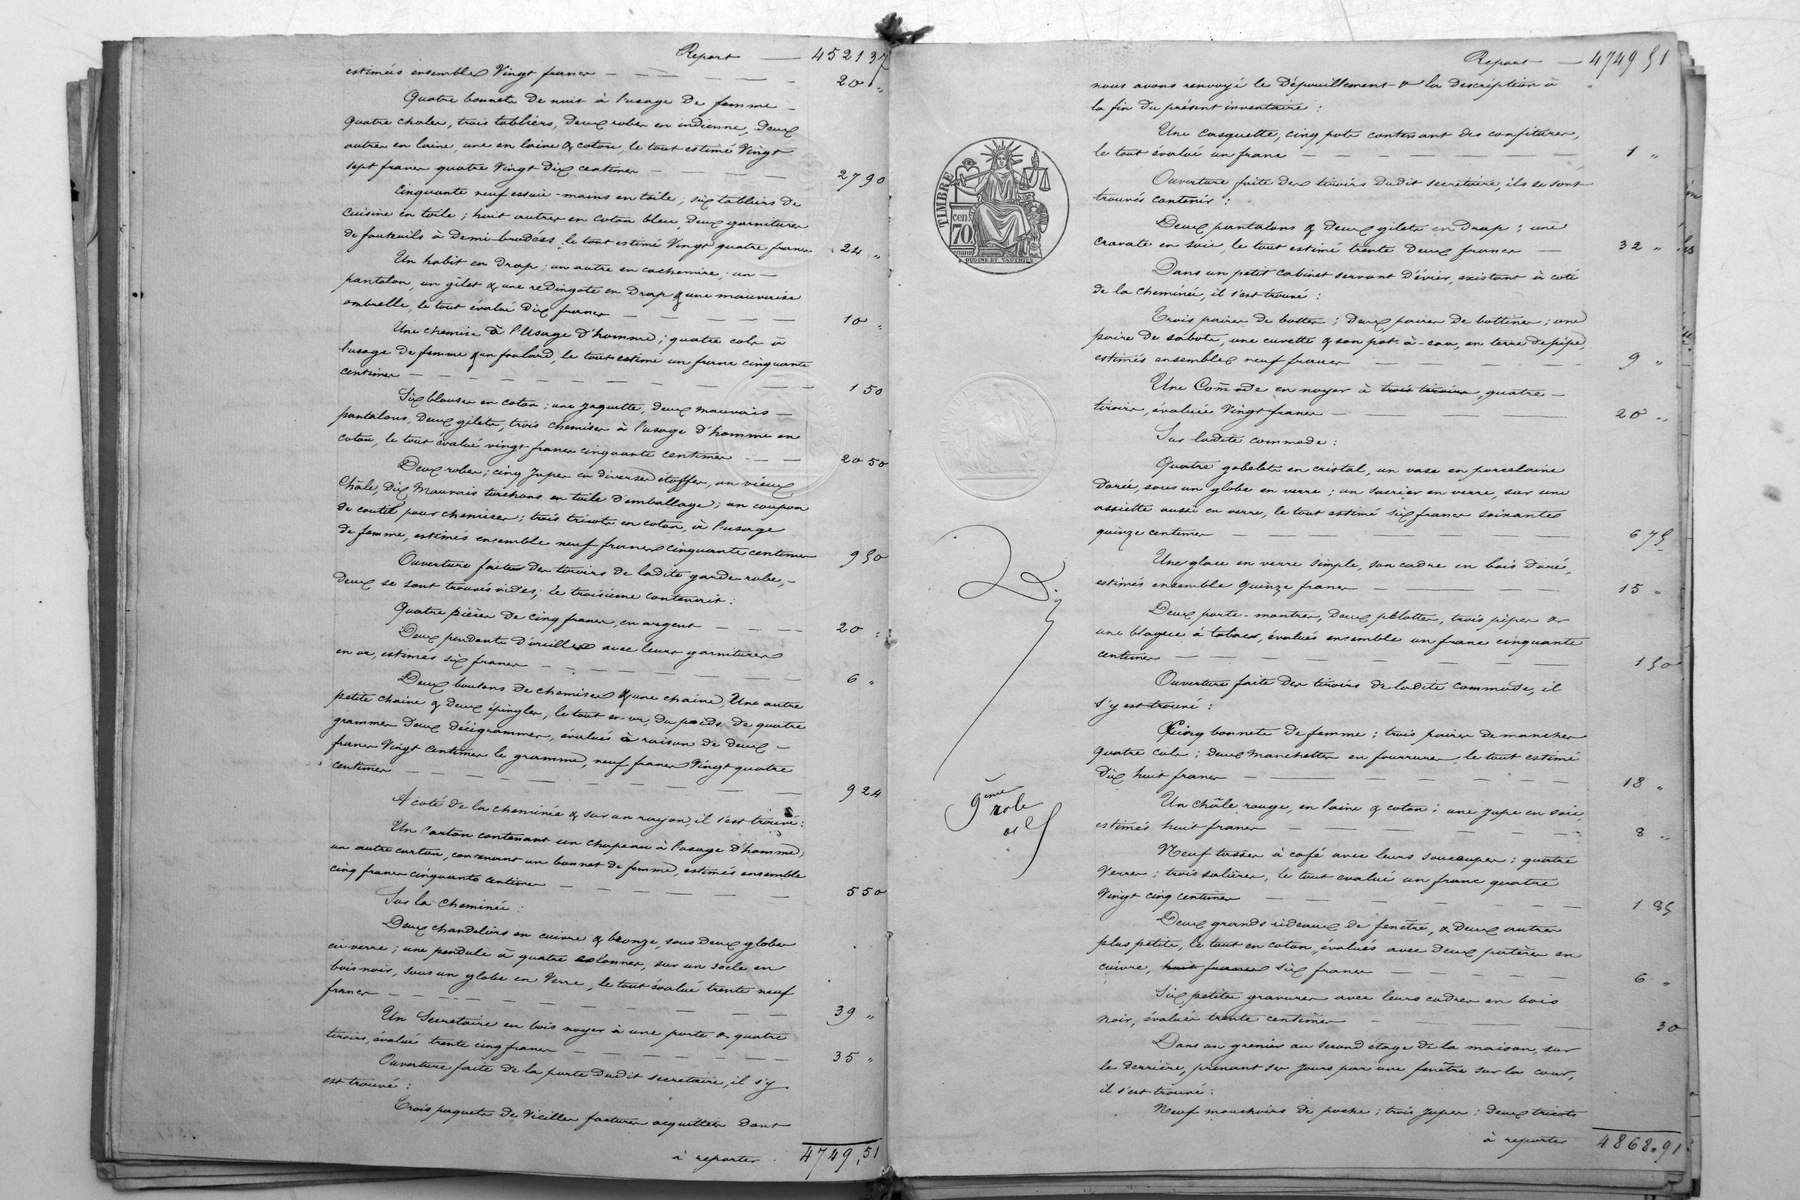 Report — 4521 37
estimées ensemble Vingt francs — 20 "
Quatre bonnets de nuit à l'usage de femme —
quatre chales, trois tabliers, deux robes en indienne, deux
autres en laine, une en laine & coton, le tout estimé Vingt
sept francs quatre Vingt Dix centimes — 27 90
Cinquante neuf essuie-mains en toile ; six tabliers de
cuisine en toile ; huit autres en coton bleu, deux garnitures
de fauteuils à demi-brodées, le tout estimé Vingt quatre francs 24 "
Un habit en drap ; un autre en cachemire ; un —
pantalon, un gilet & une redingote en Drap & une mauvaise
ombrelle, le tout évalué dix francs — 10 "
Une chemise à l'usage d'homme ; quatre cols à
l'usage de femme & un foulard, le tout estimé un franc cinquante
centimes — 1 50
Six blouses en coton ; une jaquette, deux mauvais —
pantalons, deux gilets, trois chemises à l'usage d'homme en
coton, le tout évalué vingt francs cinquante centimes — 20 50
Deux robes ; cinq jupes en diverses étoffes, un vieux
Châle, Dix Mauvais torchons en toile d'emballage ; un coupon
de coutil pour chemises ; trois tricots en coton, à l'usage
de femme, estimés ensemble neuf francs cinquante centimes 9 50
Ouverture faite des tiroirs de ladite garde robe, —
deux se sont trouvés vides ; le troisième contenait :
Quatre pièces de cinq francs, en argent — 20 :
Deux pendants d'oreilles avec leurs garnitures
en or, estimés six francs — 6 "
Deux boutons de chemises & une chaine, Une autre
petite chaine & deux épingles, le tout en or, du poids de quatre
grammes deux décigrammes, évalués à raison de deux —
francs Vingt centimes le gramme, neuf francs Vingt quatre
centimes — 9 24
A coté de la cheminée & sur un rayon, il s'est trouvé :
Un carton contenant un chapeau à l'usage d'homme ;
un autre carton, contenant un bonnet de femme, estimés ensemble
cinq francs cinquante centimes — 5 50
Sur la cheminée :
Deux chandeliers en cuivre & bronze, sous deux globes
en verre ; une pendule à quatre colonnes, sur un socle en
bois noir, sous un globe en Verre, le tout évalué trente neuf
francs — 39 "
Un Secretaire en bois noyer à une porte & quatre
tiroirs, évalué trente cinq francs — 35 "
Ouverture faite de la porte dudit secretaire, il s'y
est trouvé :
Trois paquets de Vieilles factures acquittées dont
à reporter . 4749,51
Report — 4749 51
nous avons renvoyé le Dépouillement & la description à
la fin du présent inventaire :
TIMBRE
cen
70
Une casquette, cinq pots contenant des confitures,
le tout évalué un franc — 1 "
Ouverture faite des tiroirs dudit secretaire, ils se sont
trouvés contenir :
Deux pantalons & deux gilets en Drap ; une
cravate en soie, le tout estimé trente Deux francs — 32 "
Dans un petit cabinet servant d'évier, existant à coté
de la cheminée, il s'est trouvé :
Trois paires de bottes ; deux paires de bottines ; une
paire de sabots, une cuvette & son pot-à-eau, en terre de pipe,
estimés ensemble neuf francs — 9 "
Une Commode en noyer à trois tiroirs, quatre —
tiroirs, évaluée Vingt francs — 20 "
Sur ladite commode :
Quatre gobelets en cristal, un vase en porcelaine
dorée, sous un globe en verre ; un sucrier en verre, sur une
assiette aussi en verre, le tout estimé six francs soixante
quinze centimes — 6 75
Une glace en verre simple, son cadre en bois doré,
estimés ensemble quinze francs — 15 "
Deux porte-montres, deux pelottes, trois pipes &
une blague à tabac, évalués ensemble un franc cinquante
centimes — 1 50
Ouverture faite des tiroirs de ladite commode, il
s'y est trouvé :
Cinq bonnets de femme ; trois paires de manches
quatre cols ; deux Manchettes en fourrure, le tout estimé
Dix huit francs — 18 "
9ème
robe
Un Châle rouge, en laine & coton ; une jupe en soie
estimés huit francs — 8 "
Neuf tasses à café avec leurs soucoupes ; quatre
Verres ; trois salières, le tout évalué un franc quatre
Vingt cinq centimes — 1 85
Deux grands rideaux de fenêtre, & deux autres
plus petits, le tout en coton, évalués avec deux patères en
cuivre, huit francs six francs — 6 "
Six petites gravures avec leurs cadres en bois
noir, évalués trente centimes — 30
Dans un grenier au second étage de la maison, sur
le derrière, prenant ses jours par une fenêtre sur la cour,
il s'est trouvé :
Neuf mouchoirs de poche ; trois jupes ; deux tricots
à reporter 4868.91